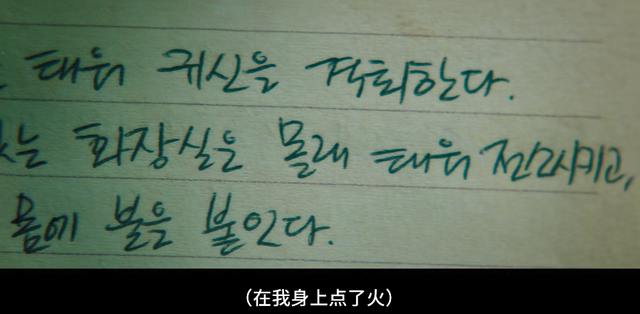 태워 귀신을 격퇴한다.
는 화장실은 몰래 태워 전소시키고,
몸에 불을 붙인다.
（在我身上点了火）